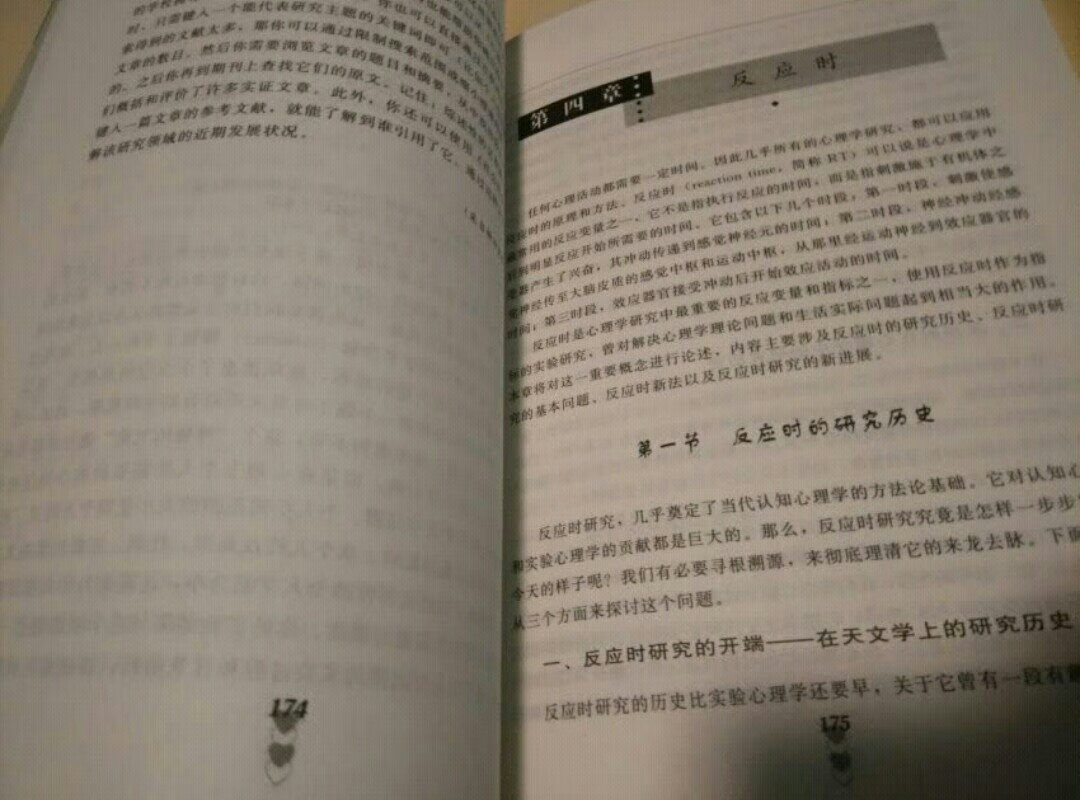 的学校
时，只需键入一个能代表研究主题的关键词即可
索得到的文献太多，那你可以通过限制搜索范围或
文章的数目。然后你需要浏览文章的题目和摘要，从中
的。之后你再到期刊上查找它们的原文。记住，综述性
们概括和评价了许多实证文章。此外，你还可以使用
键入一篇文章的参考文献，就能了解到谁引用了它，通过
解该研究领域的近期发展状况。
174
第四章
反应时
任何心理活动都需要一定时间。因此几乎所有的心理学研究，都可以应用
反应时的原理和方法。反应时（reaction time，简称 RT）可以说是心理学中
最常用的反应变量之一，它不是指执行反应的时间，而是指刺激施于有机体之
后到明显反应开始所需要的时间。它包含以下几个时段，第一时段，刺激使感
受器产生了兴奋，其冲动传递到感觉神经元的时间；第二时段，神经冲动经感
觉神经传至大脑皮质的感觉中枢和运动中枢，从那里经运动神经到效应器官的
时间；第三时段，效应器官接受冲动后开始效应活动的时间。
反应时是心理学研究中最重要的反应变量和指标之一，使用反应时作为指
标的实验研究，曾对解决心理学理论问题和生活实际问题起到相当大的作用。
本章将对这一重要概念进行论述，内容主要涉及反应时的研究历史、反应时研
究的基本问题、反应时新法以及反应时研究的新进展。
第一节 反应时的研究历史
反应时研究，几乎奠定了当代认知心理学的方法论基础。它对认知心
和实验心理学的贡献都是巨大的。那么，反应时研究究竟是怎样一步步
今天的样子呢？我们有必要寻根溯源，来彻底理清它的来龙去脉。下面
从三个方面来探讨这个问题。
一、反应时研究的开端——在天文学上的研究历史
反应时研究的历史比实验心理学还要早，关于它曾有一段有
175